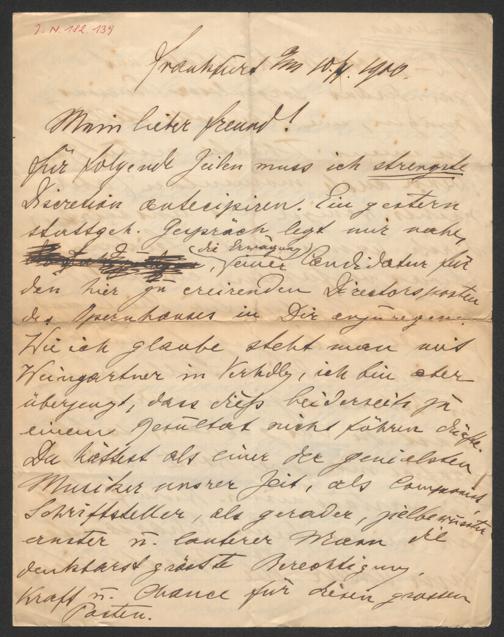 I. N. 182.134
Frankfurt a/M 10./4. 1900.
Mein lieber Freund!
Für folgende Zeilen muss ich strengste
Discretion antecipiren. Ein gestern
stattgeh. Gespräch legt mir nahe,
(die Erwägung)
einer Candidatur für
den hier zu creirenden Directorsposten
des Opernhauses in Dir anzuregen.
Wie ich glaube steht man mit
Weingartner in Verhdlg, ich bin aber
überzeugt, dass dieß beiderseits zu
einem Resultat nicht führen dürfte.
Du hättest als einer der genialsten
Musiker unsrer Zeit, als Componist
Schriftsteller, als gerader, zielbewusster
ernster u. lauterer Mann die
denkbarst größte Berechtigung,
Kraft u. Chance für diesen grossen
Posten.